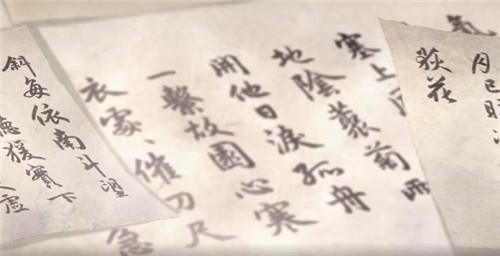 月已映
荻花
氣
塞上風
地陰叢菊兩
開他日淚孤舟
一繫故園心寒
衣處、催刀尺
急
斜每依南斗望
聽猿實下
虛